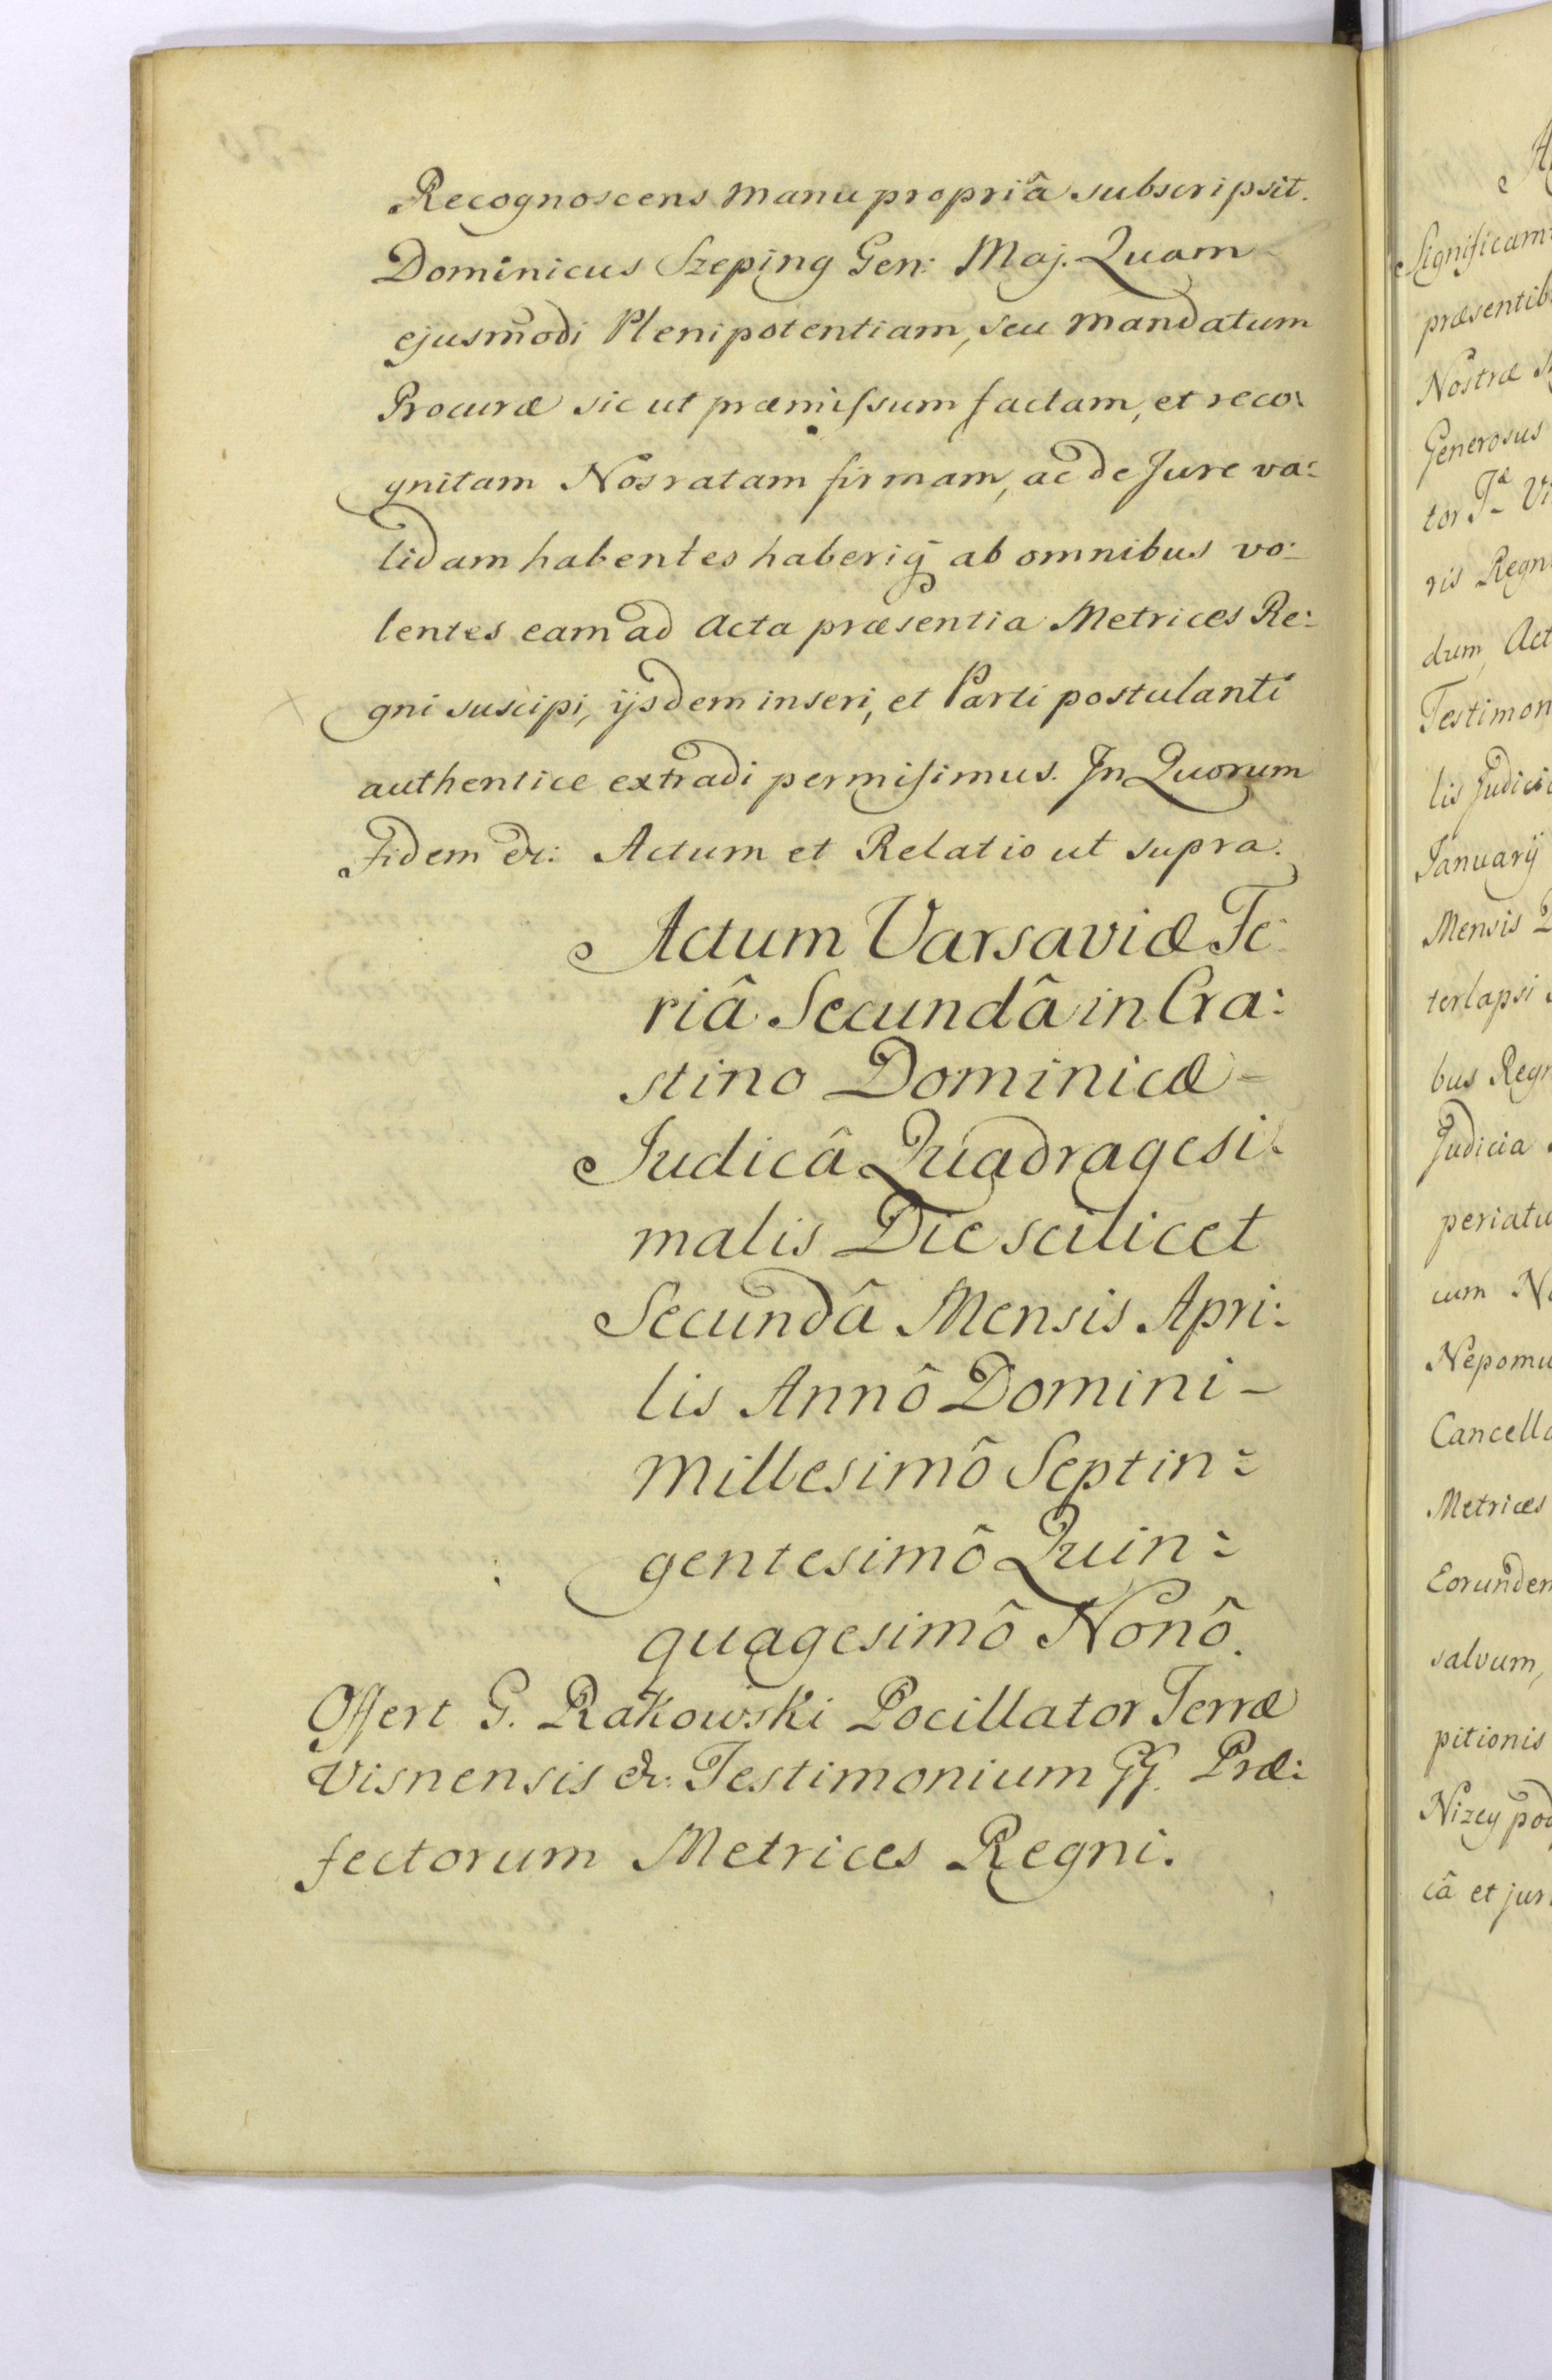 Recognoscens manu propriâ subscripsit.
Dominicus Szeping Gen: Maj. Quam
ejusmodi Plenipotentiam, seu mandatum
Procuræ sic ut præmissum factam, et reco:
gnitam Nos ratam firmam, ac de Jure va:
lidam habentes haberiq̃ ab omnibus vo:
lentes eam ad Acta præsentia Metrices Re:
gni suscipi, ijsdem inseri, et Parti postulanti
authentice extradi permisimus. In Quorum
Fidem &c: Actum et Relatio ut supra.
Actum Varsaviæ Fe:
riâ Secundâ in Cra:
stino Dominicæ -
Judicâ Quadragesi:
malis Die scilicet
Secundâ Mensis Apri:
lis Annô Domini -
Millesimô Septin:
gentesimô Quin:
quagesimô Nonô.
Offert G. Rakowski Pocillator Terræ
Visnensis &c: Testimonium GG. Præ:
fectorum Metrices Regni.
Significam
præsentib
Nostræ
Generosus
tor
ris Regn
dum, Act
Testimon
lis Judici
Januarÿ
Mensis
terlapsi
bus Regn
Judicia
periatu
cum
Nepomu
Cancella
Metrices
Eorundem
salvum,
pitionis
Nizey pod
câ et jur